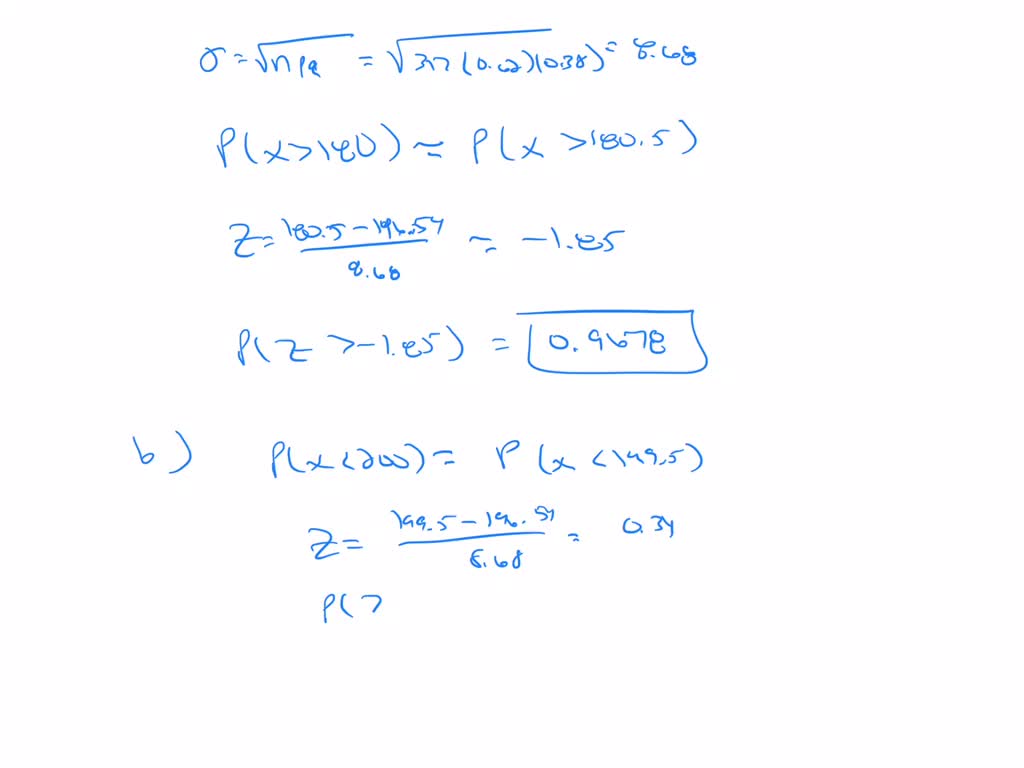 σ = √npq = √317(0.62)(0.38) = 8.68
P(x>180) ≈ P(x >180.5)
Z= 180.5 - 196.54 / 8.68 ≈ -1.85
P(Z >-1.85) = 0.9678
b) P(x<200) = P(x <199.5)
Z = 199.5 - 196.54 / 8.68 = 0.34
P(Z